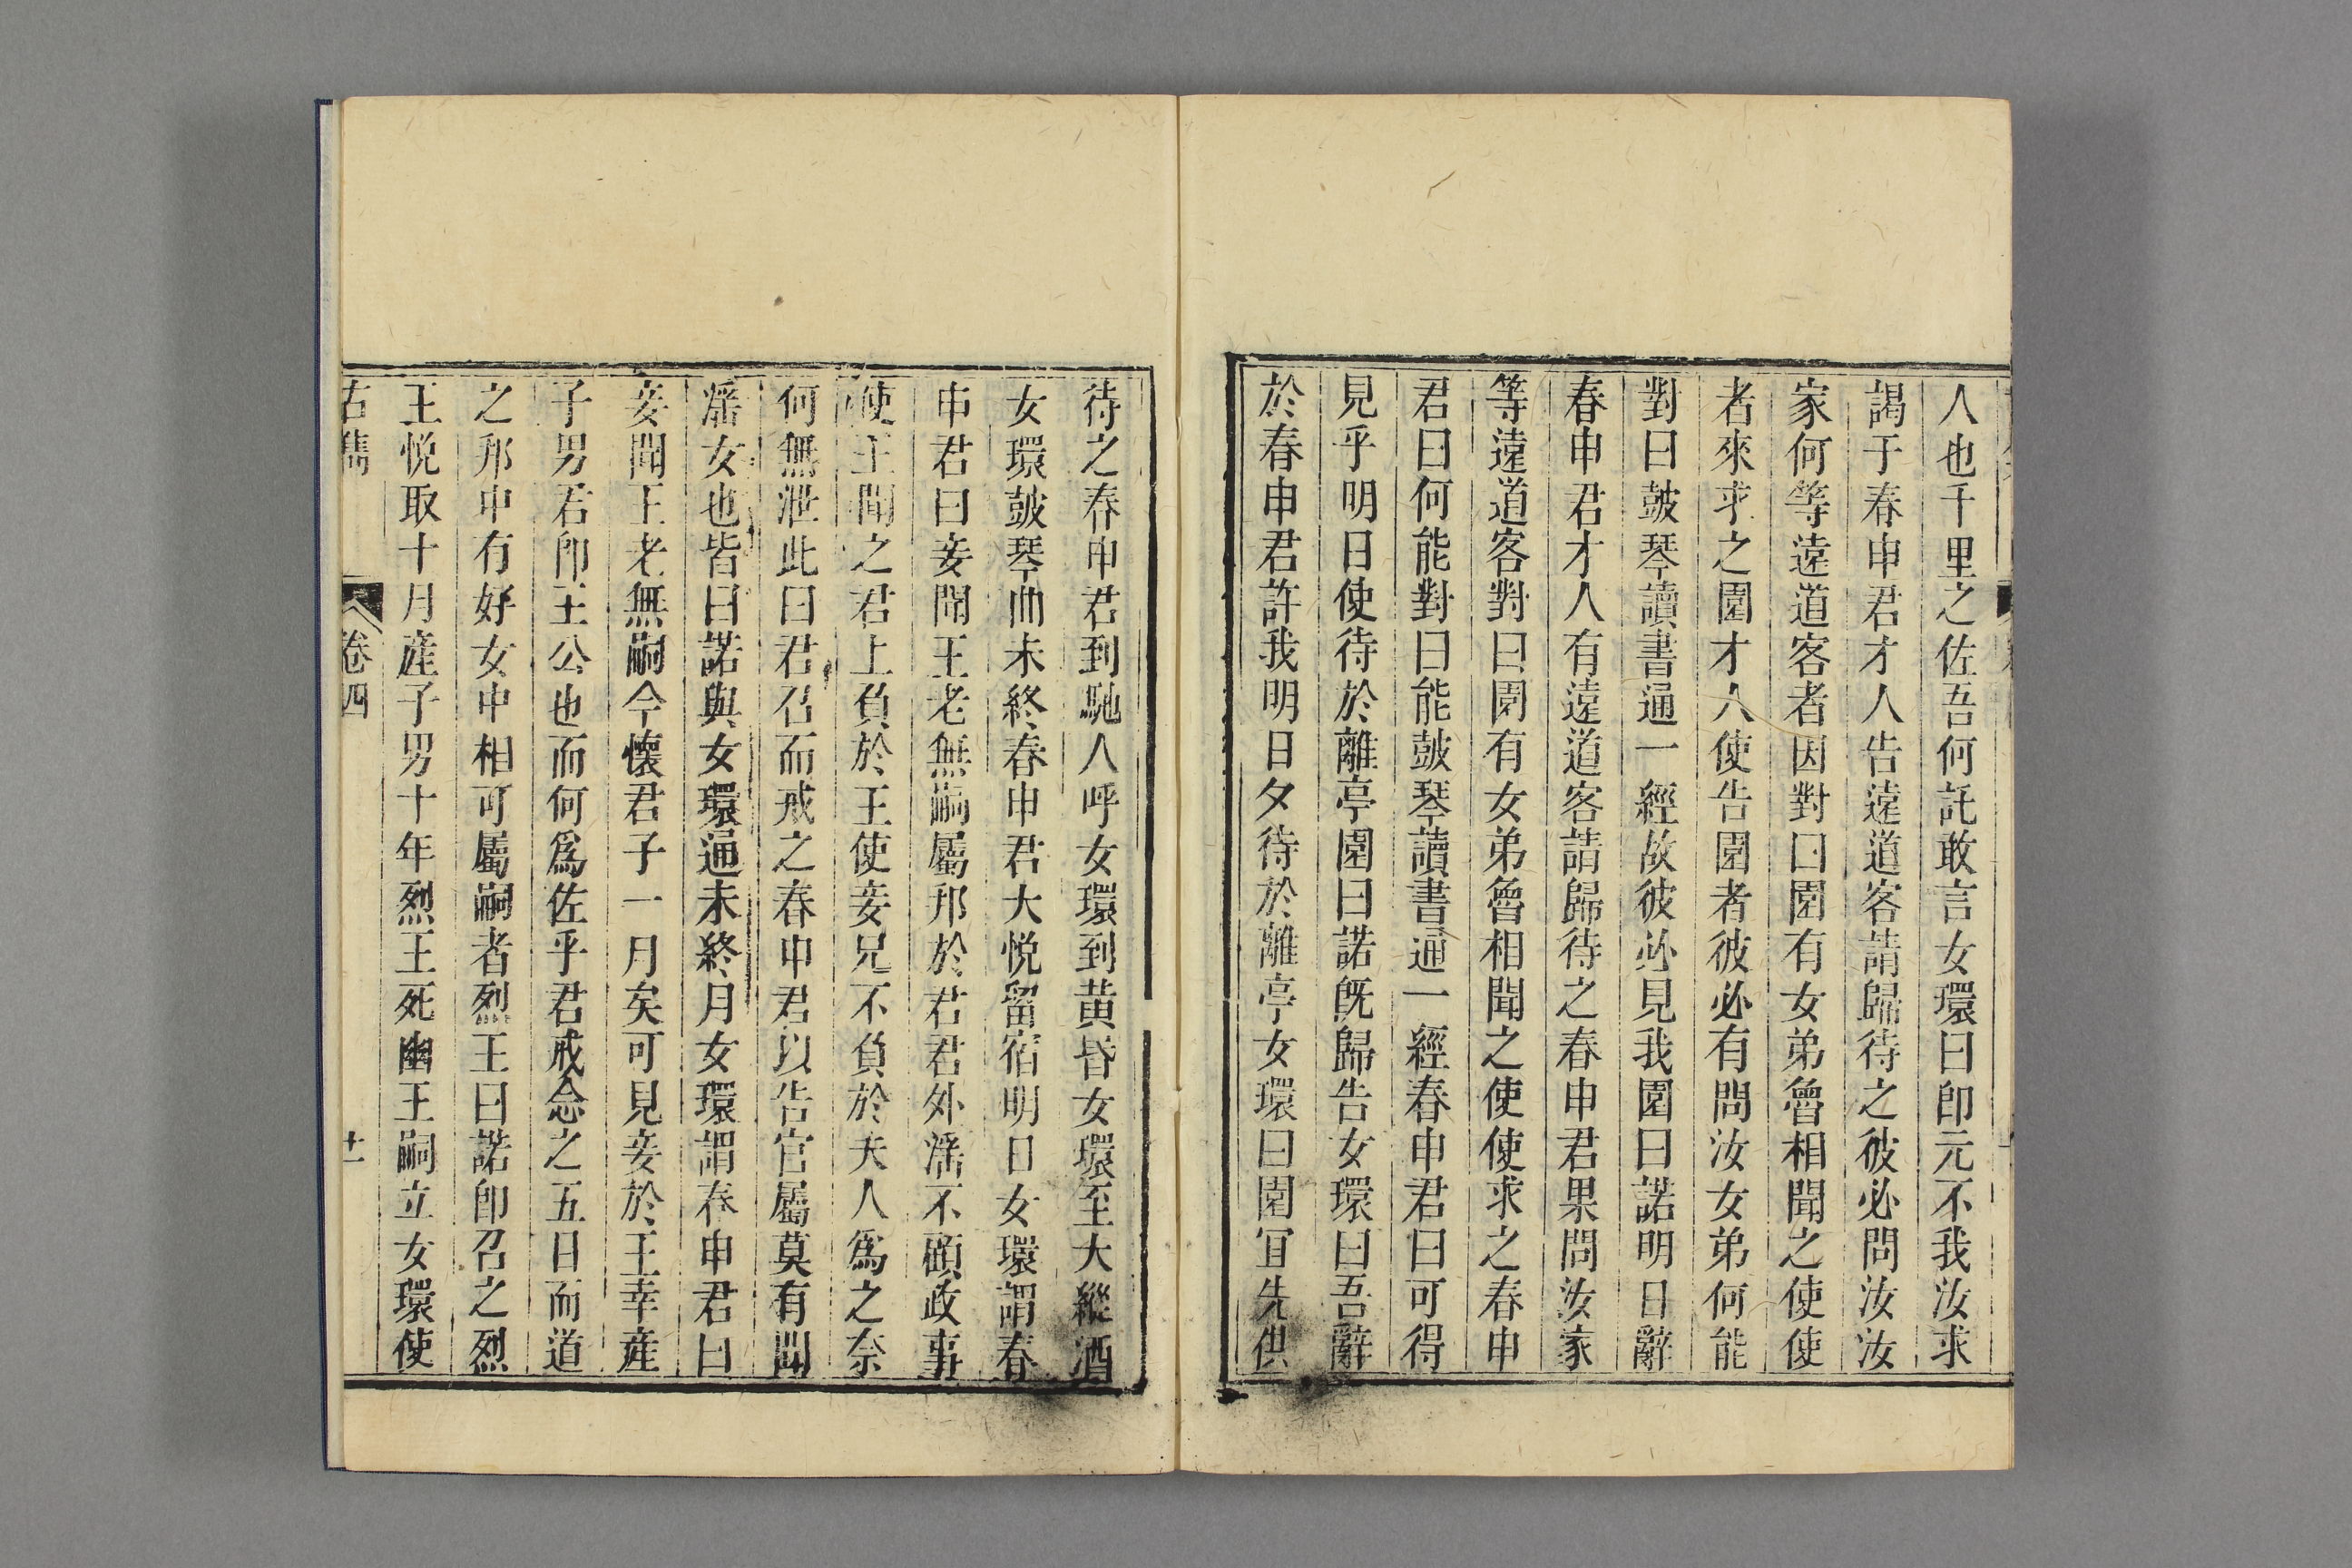 人也千里之佐吾何託敢言女環曰卽元不我汝求
謁于春申君才人告遠道客請歸待之彼必問汝汝
家何等遠道客者因對曰園有女弟魯相聞之使使
者來求之園才人使告園者彼必有問汝女弟何能
對曰皷琴讀書通一經故彼必見我園曰諾明日辭
春申君才人有遠道客請歸待之春申君果問汝家
等遠道客對曰園有女弟魯相聞之使使求之春申
君曰何能對曰能皷琴讀書通一經春申君曰可得
見乎明日使待於離亭園曰諾旣歸告女環曰吾辭
於春申君許我明日夕待於離亭女環曰園冝先供
待之春申君到馳人呼女環到黃昏女環至大縱酒
女環皷琴曲未終春申君大悅留宿明日女環謂春
申君曰妾聞王老無嗣屬邦於君君外滛不顧政事
使王聞之君上負於王使妾兄不負於夫人爲之奈
何無泄此曰君召而戒之春申君以告官屬莫有聞
滛女也皆曰諾與女環通未終月女環謂春申君曰
妾聞王老無嗣今懷君子一月矣可見妾於王幸產
子男君卽王公也而何爲佐乎君戒念之五日而道
之邦中有好女中相可屬嗣者烈王曰諾卽召之烈
王悅取十月產子男十年烈王死幽王嗣立女環使
古雋
卷四
十一